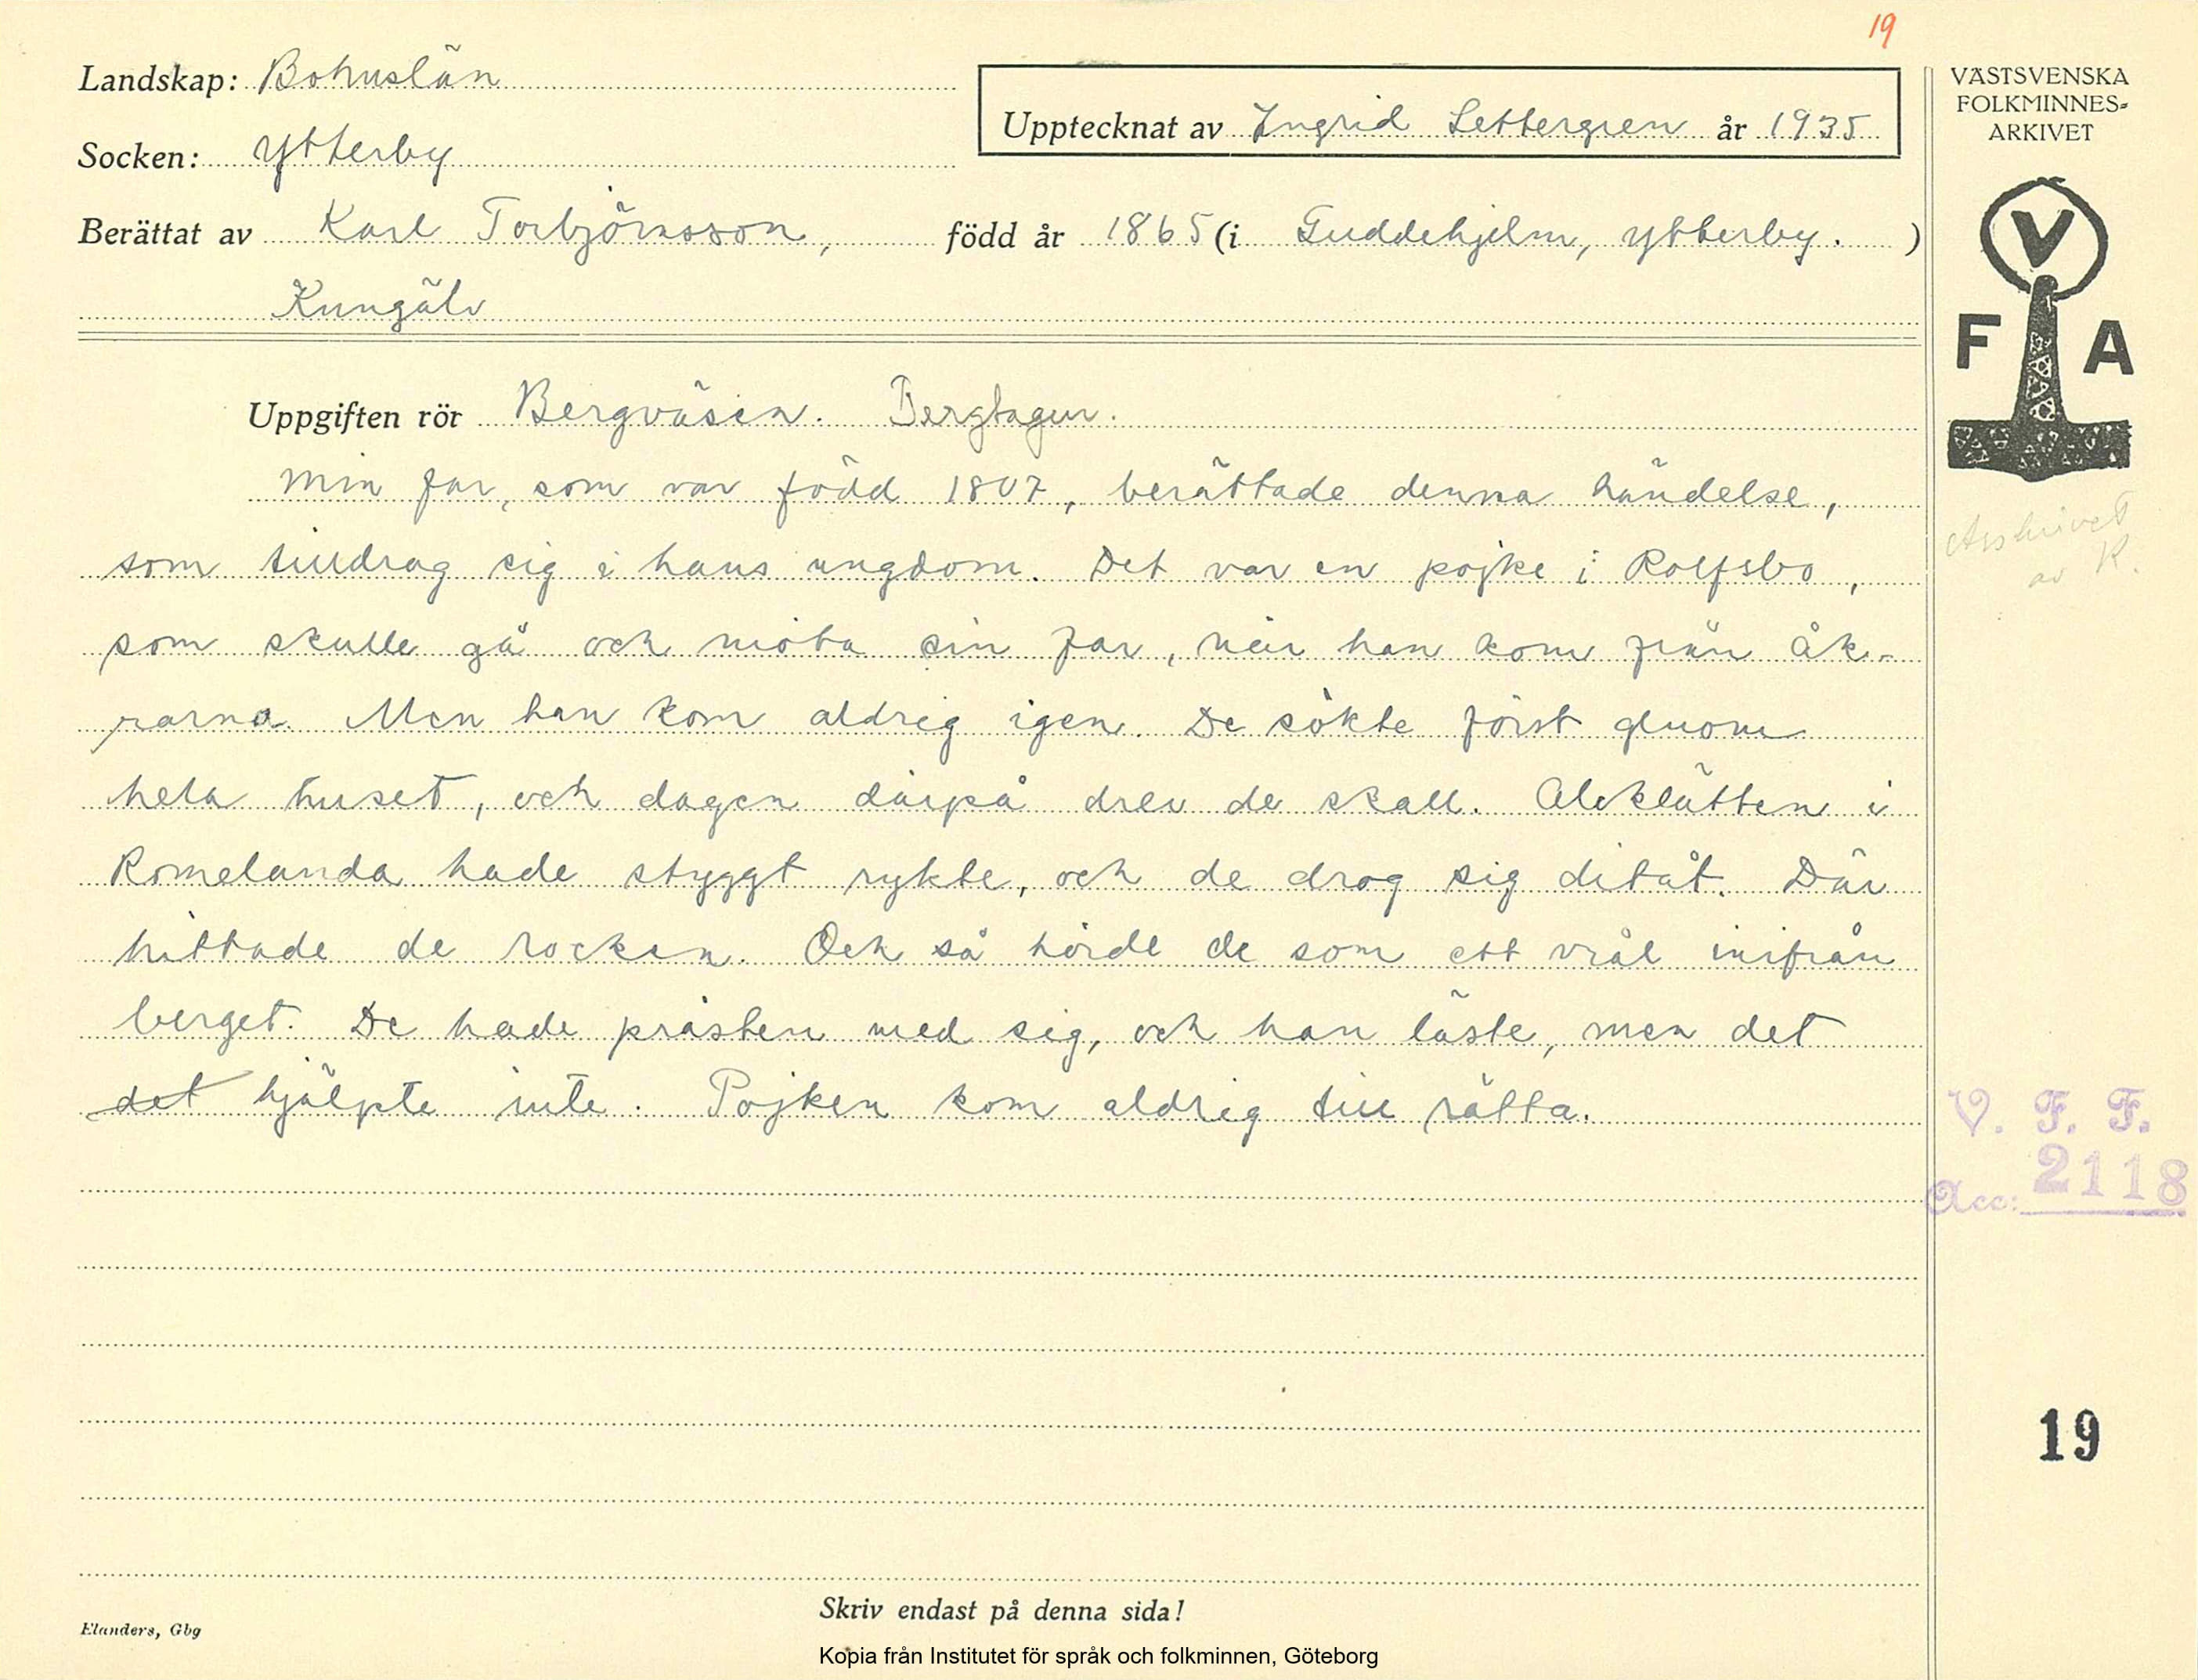 19
Landskap: Bohuslän
Upptecknat av Ingrid Settergren år 1935
Socken: Ytterby
Berättat av Karl Torbjörnsson, född år 1865 (i Guddehjelm, Ytterby. )
Kungälv
Uppgiften rör Bergväsen. Bergtagen.
Min far, som var född 1807, berättade denna händelse,
som tilldrog sig i hans ungdom. Det var en pojke i Rolfsbo,
som skulle gå och möta sin far, när han kom från åk-
rarna. Men han kom aldrig igen. De sökte först genom
hela huset, och dagen därpå drev de skall. Aleklätten i
Romelanda hade styggt rykte, och de drog sig ditåt. Där
hittade de rocken. Och så hörde de som ett vrål inifrån
berget. De hade prästen med sig, och han läste, men det
det hjälpte inte. Pojken kom aldrig till rätta.
VÄSTSVENSKA
FOLKMINNES-
ARKIVET
V
F A
av K.
V. F. F.
Acc: 2118
19
Skriv endast på denna sida!
Elanders, Gbg
Kopia från Institutet för språk och folkminnen, Göteborg